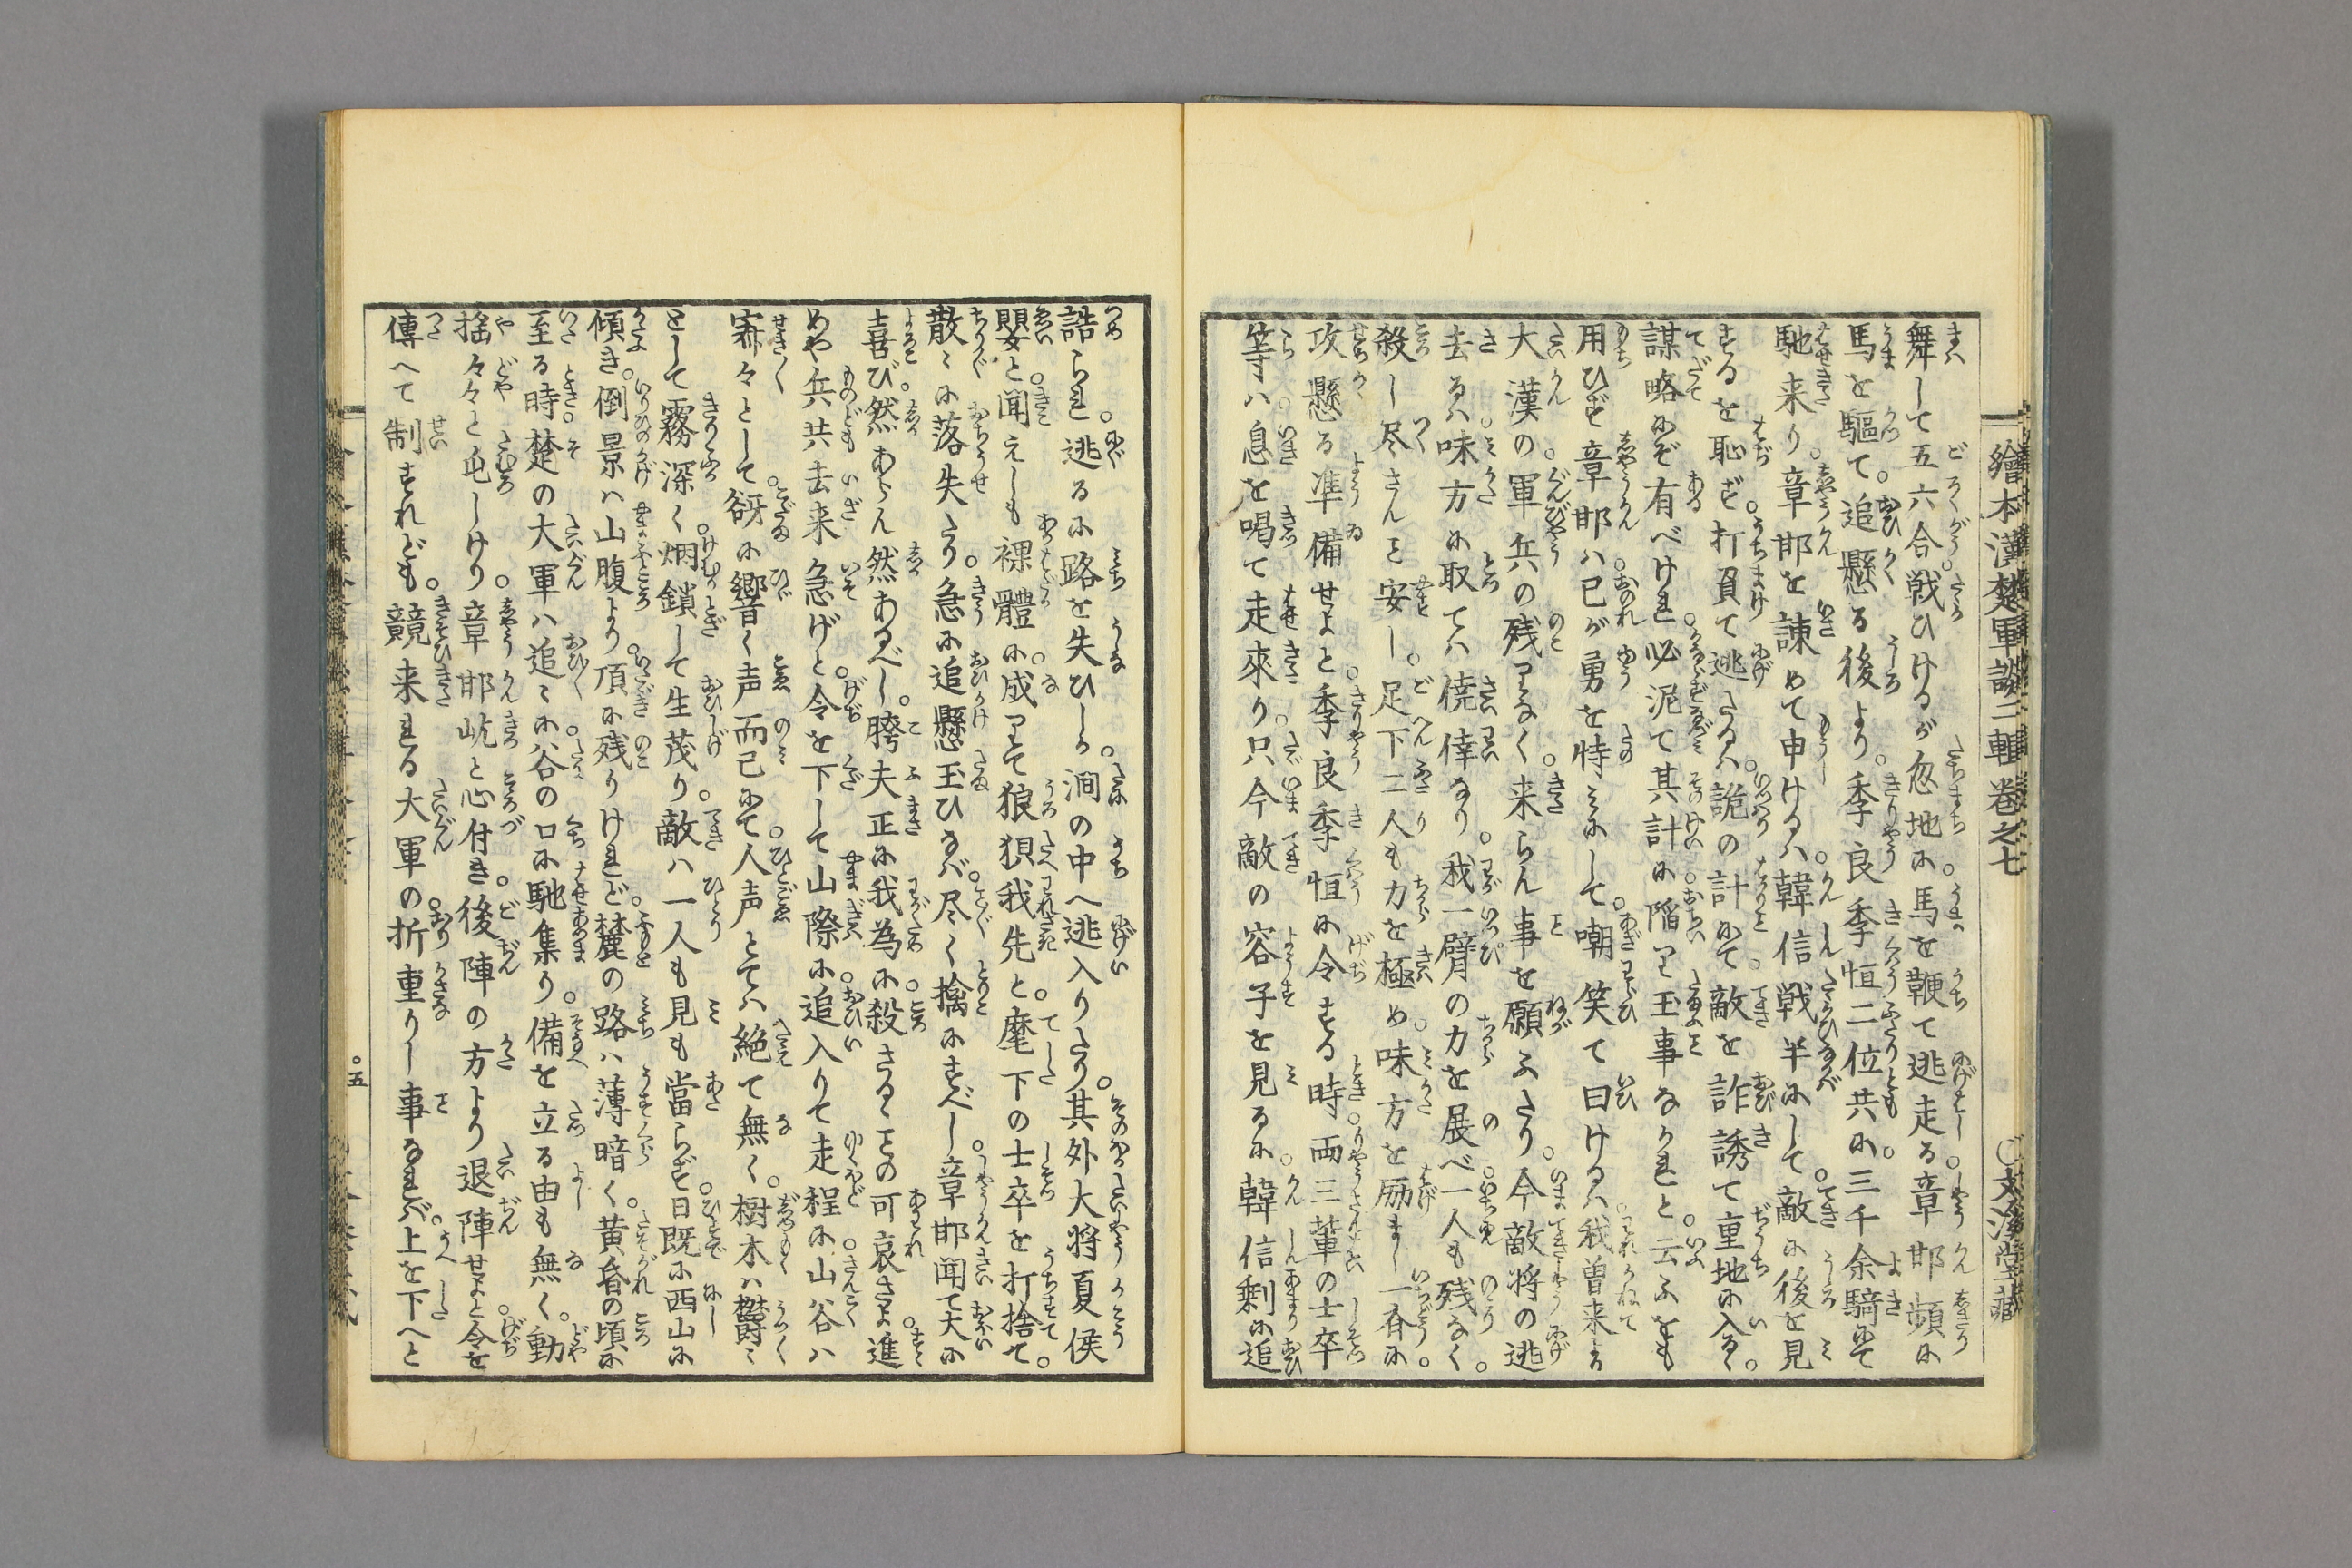 繪本漢楚軍談二輯卷之七
○文溪堂藏
舞して五六合戦ひけるが忽地に馬を鞭て逃走る章邯頻に
馬を驅て追懸る後より季良季恒二位共に三千余騎にて
馳来り章邯を諌めて申けるハ韓信戦半にして敵に後を見
するを恥ず打負て逃たるハ詭の計にて敵を詐誘て重地に入るゝ
謀略にぞ有べけれ必泥て其計に陥り玉事なかれと云ふをも
用ひず章邯ハ已が勇を恃みにして嘲笑て曰けるハ我曽来より
大漢の軍兵の残りなく来らん事を願ふたり今敵将の逃
去るハ味方に取てハ僥倖なり我一臂の力を展べ一人も残なく
殺し尽さんと安し足下二人も力を極め味方を励まし一斉に
攻懸る凖備せよと季良季恒に令する時両三輩の士卒
等ハ息を喝て走來り只今敵の容子を見るに韓信剰に追
誥られ逃るに路を失ひしか澗の中へ逃入りたり其外大将夏侯
嬰と聞えしも裸體に成りて狼狽我先と麾下の士卒を打捨て
散〻に落失たり急に追懸玉ひなバ尽く擒にすべし章邯聞て大に
喜び然あらん然あるべし胯夫正に我為に殺さるゝとの可哀さよ進
めや兵共去来急げと令を下して山際に追入りて走程に山谷ハ
寂々として谺に響く声而已にて人声とてハ絶て無く樹木ハ鬱〻
として霧深く烟鎖して生茂り敵ハ一人も見も當らず日既に西山に
傾き倒景ハ山腹より頂に残りけれど麓の路ハ薄暗く黄昏の頃に
至る時楚の大軍ハ追〻に谷の口に馳集り備を立る由も無く動
揺々々と屯しけり章邯屹と心付き後陣の方より退陣せよと令を
傳へて制すれども競来れる大軍の折重りし事なれバ上を下へと
○五